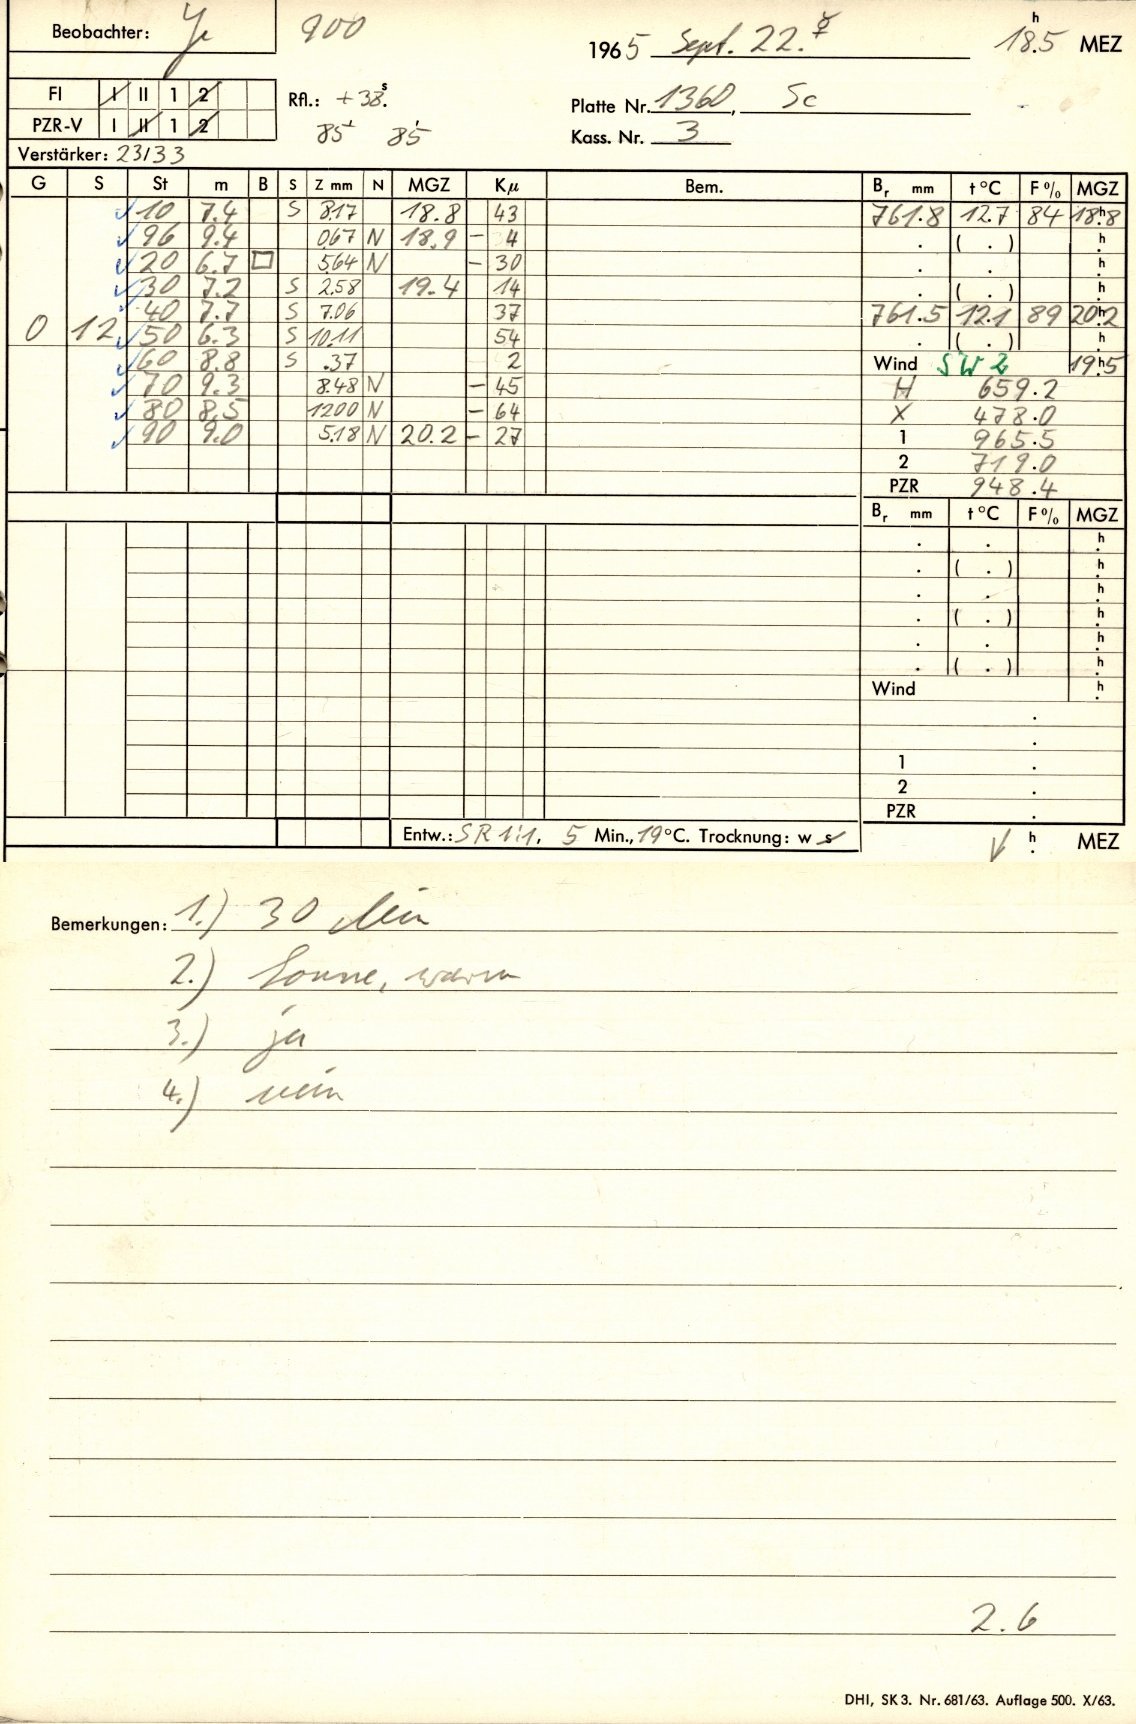 Beobachter: Ye 900 1965 Sept. 22. ☿ 18.5 h MEZ
FI I II 1 2 Rfl.: +38.s Platte Nr. 1360, Sc
PZR-V I II 1 2 85 85 Kass. Nr. 3
Verstärker: 23/33
G S St m B S Z mm N MGZ Kμ Bem. Br mm t°C F% MGZ
10 7.4 S 8.17 18.8 43 761.8 12.7 84 18h.8
96 9.4 0.67 N 18.9 - 4 . ( . ) h.
20 6.7 □ 5.64 N - 30 . . h.
30 7.2 S 2.58 19.4 14 . ( . ) h.
40 7.7 S 7.06 37 761.5 12.1 89 20h.2
0 12 50 6.3 S 10.11 54 . ( . ) h.
60 8.8 S .37 2 Wind SW 2 19h.5
70 9.3 8.48 N - 45 H 659.2
80 8.5 12.00 N - 64 X 478.0
90 9.0 5.18 N 20.2 - 27 1 965.5
2 719.0
PZR 948.4
Br mm t°C F% MGZ
. . h.
. ( . ) h.
. . h.
. ( . ) h.
. . h.
. ( . ) h.
Wind h.
.
.
1 .
2 .
PZR .
Entw.: SR 1:1, 5 Min., 19°C. Trocknung: w s h. MEZ
Bemerkungen: 1.) 30 Min
2.) Sonne, warm
3.) ja
4.) nein
2.6
DHI, SK 3. Nr. 681/63. Auflage 500. X/63.